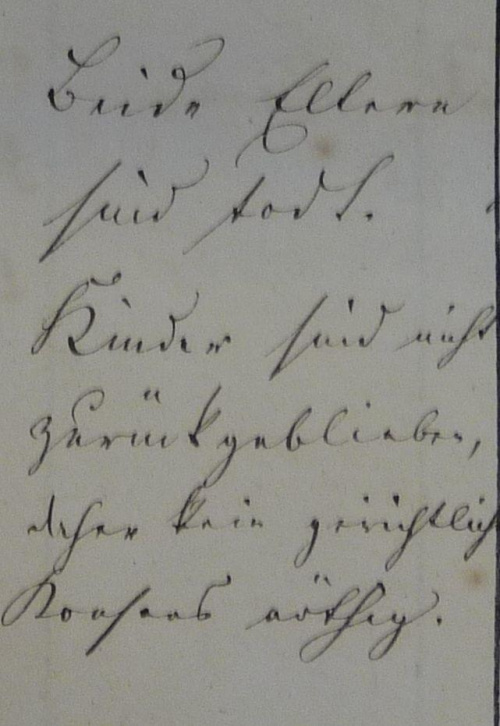 Beide Eltern
sind todt.
Kinder sind nicht
zurückgeblieben,
daher kein gerichtlich
Konsens nöthig.